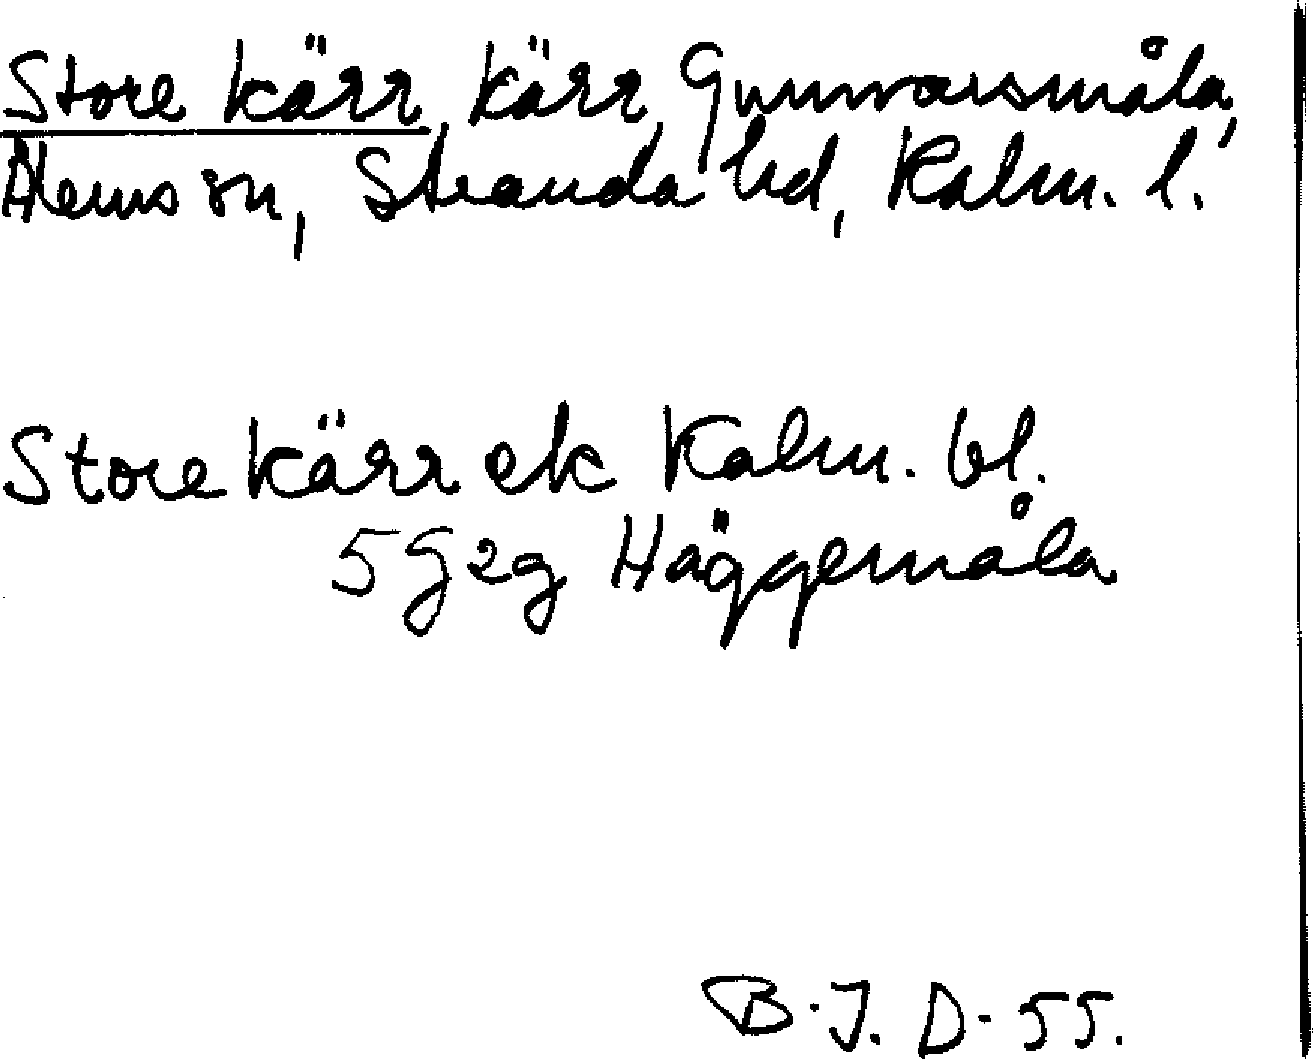 Store kärr, kärr, Gunnarsmåla,
Ålems sn, Stranda hd, Kalm. l.
Store kärr ek Kalm. bl.
5G2g Häggemåla
B.J. D-55.